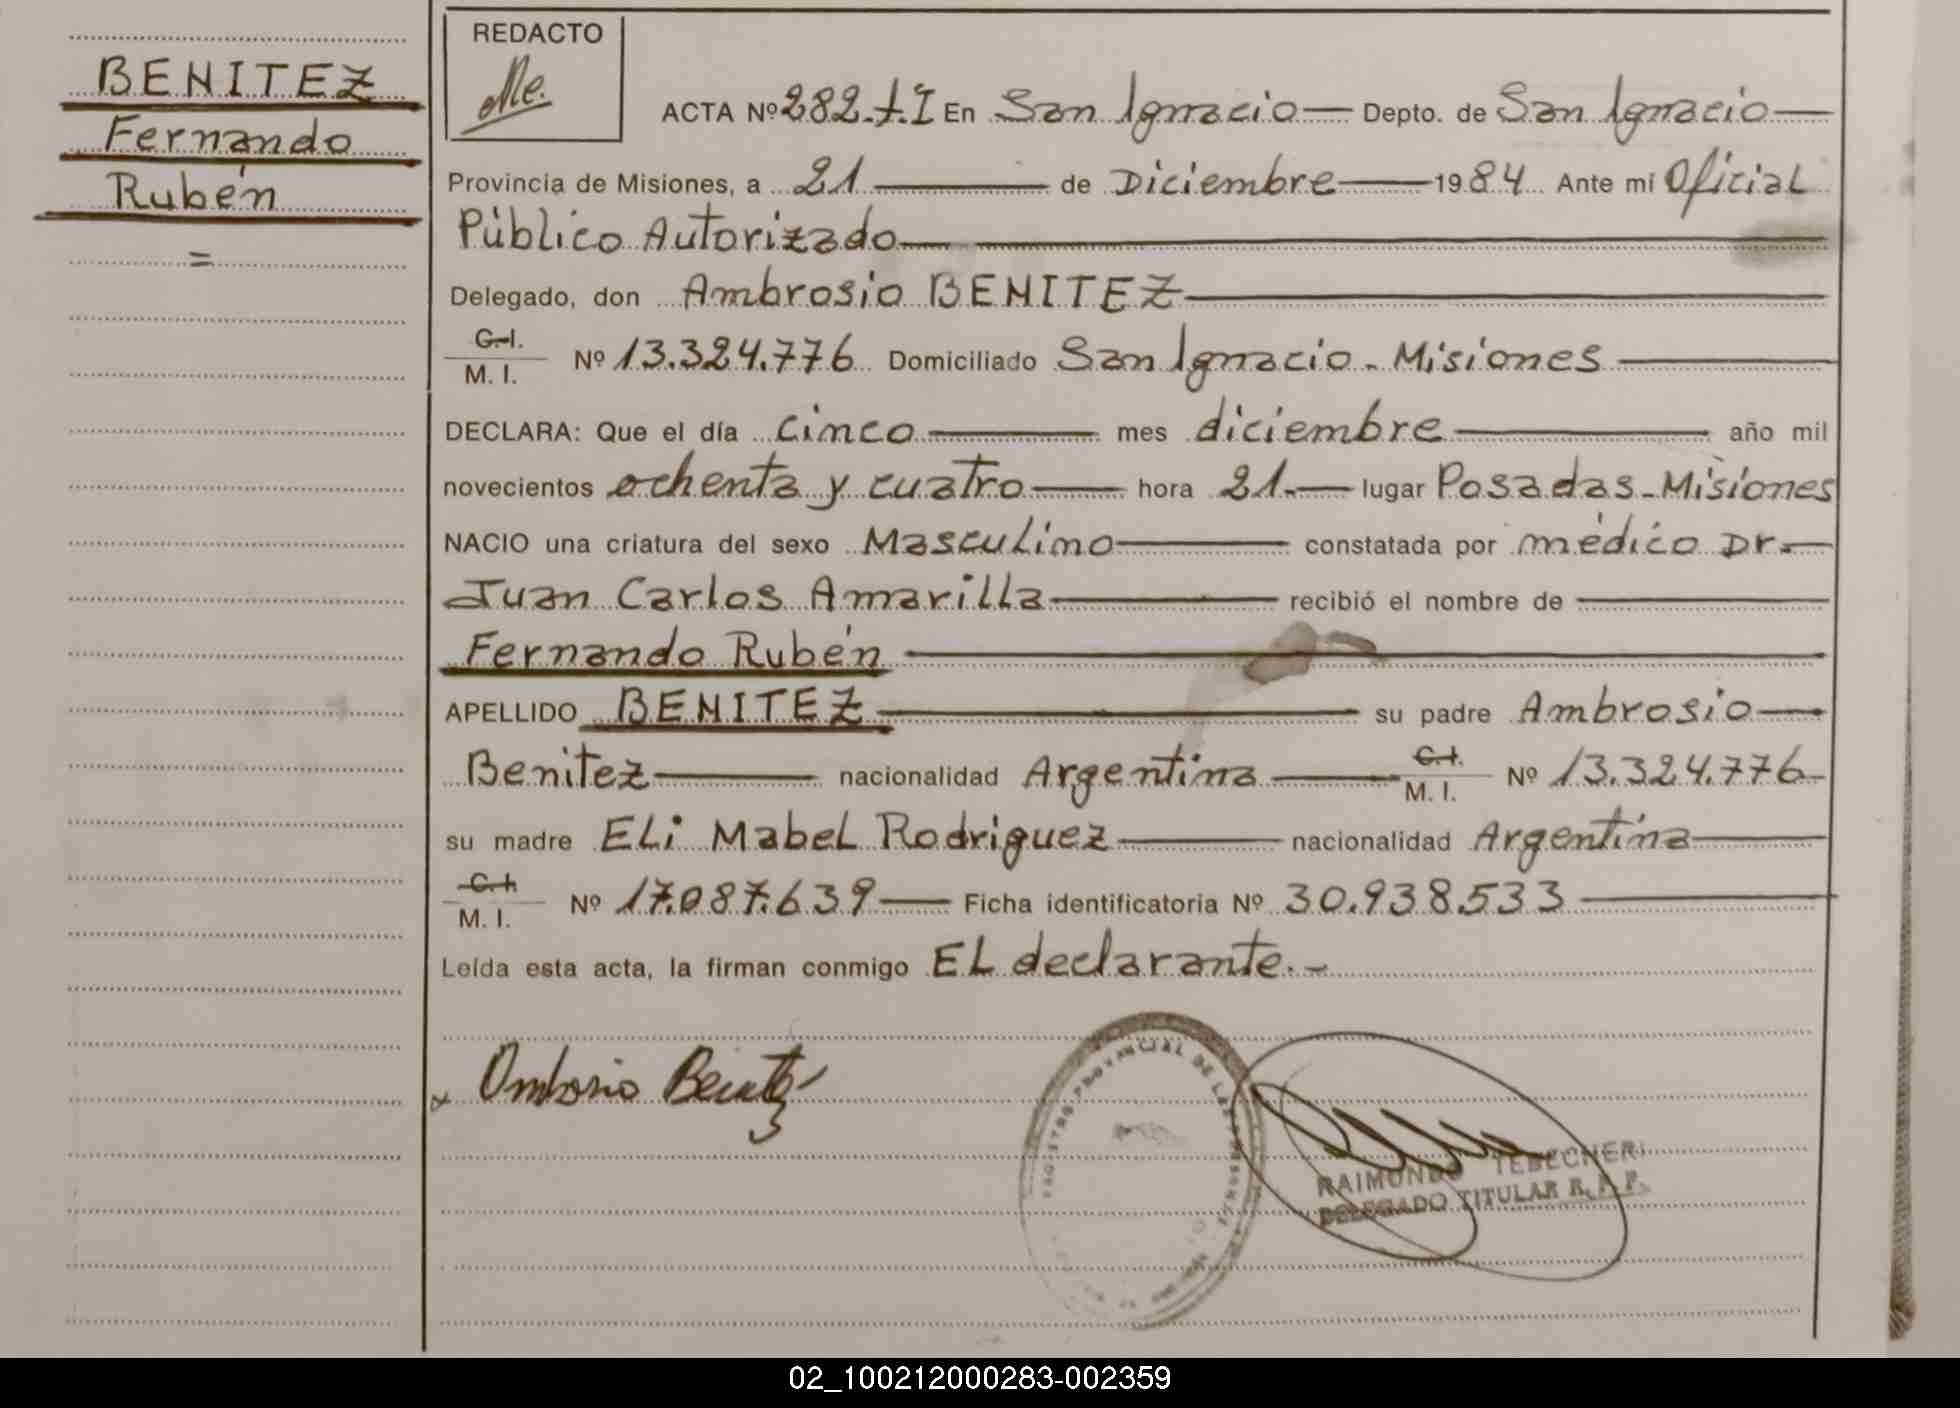 BENITEZ
Fernando
Rubén
=
REDACTO
ACTA Nº 282.-t.I En San Ignacio Depto. de San Ignacio
Provincia de Misiones, a 21 de Diciembre 1984 Ante mi Oficial
Público Autorizado
Delegado, don Ambrosio BENITEZ
C.I.
M. I. Nº 13.324.776 Domiciliado San Ignacio - Misiones
DECLARA: Que el día cinco mes diciembre año mil
novecientos ochenta y cuatro hora 21.- lugar Posadas-Misiones
NACIO una criatura del sexo Masculino constatada por médico Dr.-
Juan Carlos Amarilla recibió el nombre de
Fernando Rubén
APELLIDO BENITEZ su padre Ambrosio
Benitez nacionalidad Argentina C.I.
M. I. Nº 13.324.776
su madre Eli Mabel Rodriguez nacionalidad Argentina
C.I.
M. I. Nº 17.087.639 Ficha identificatoria Nº 30.938.533
Leída esta acta, la firman conmigo El declarante.-
Ambrosio Benitez
REGISTRO PROVINCIAL DE LAS PERSONAS
RAIMUNDO TEBECHERI
DELEGADO TITULAR R. P. P.
02_100212000283-002359